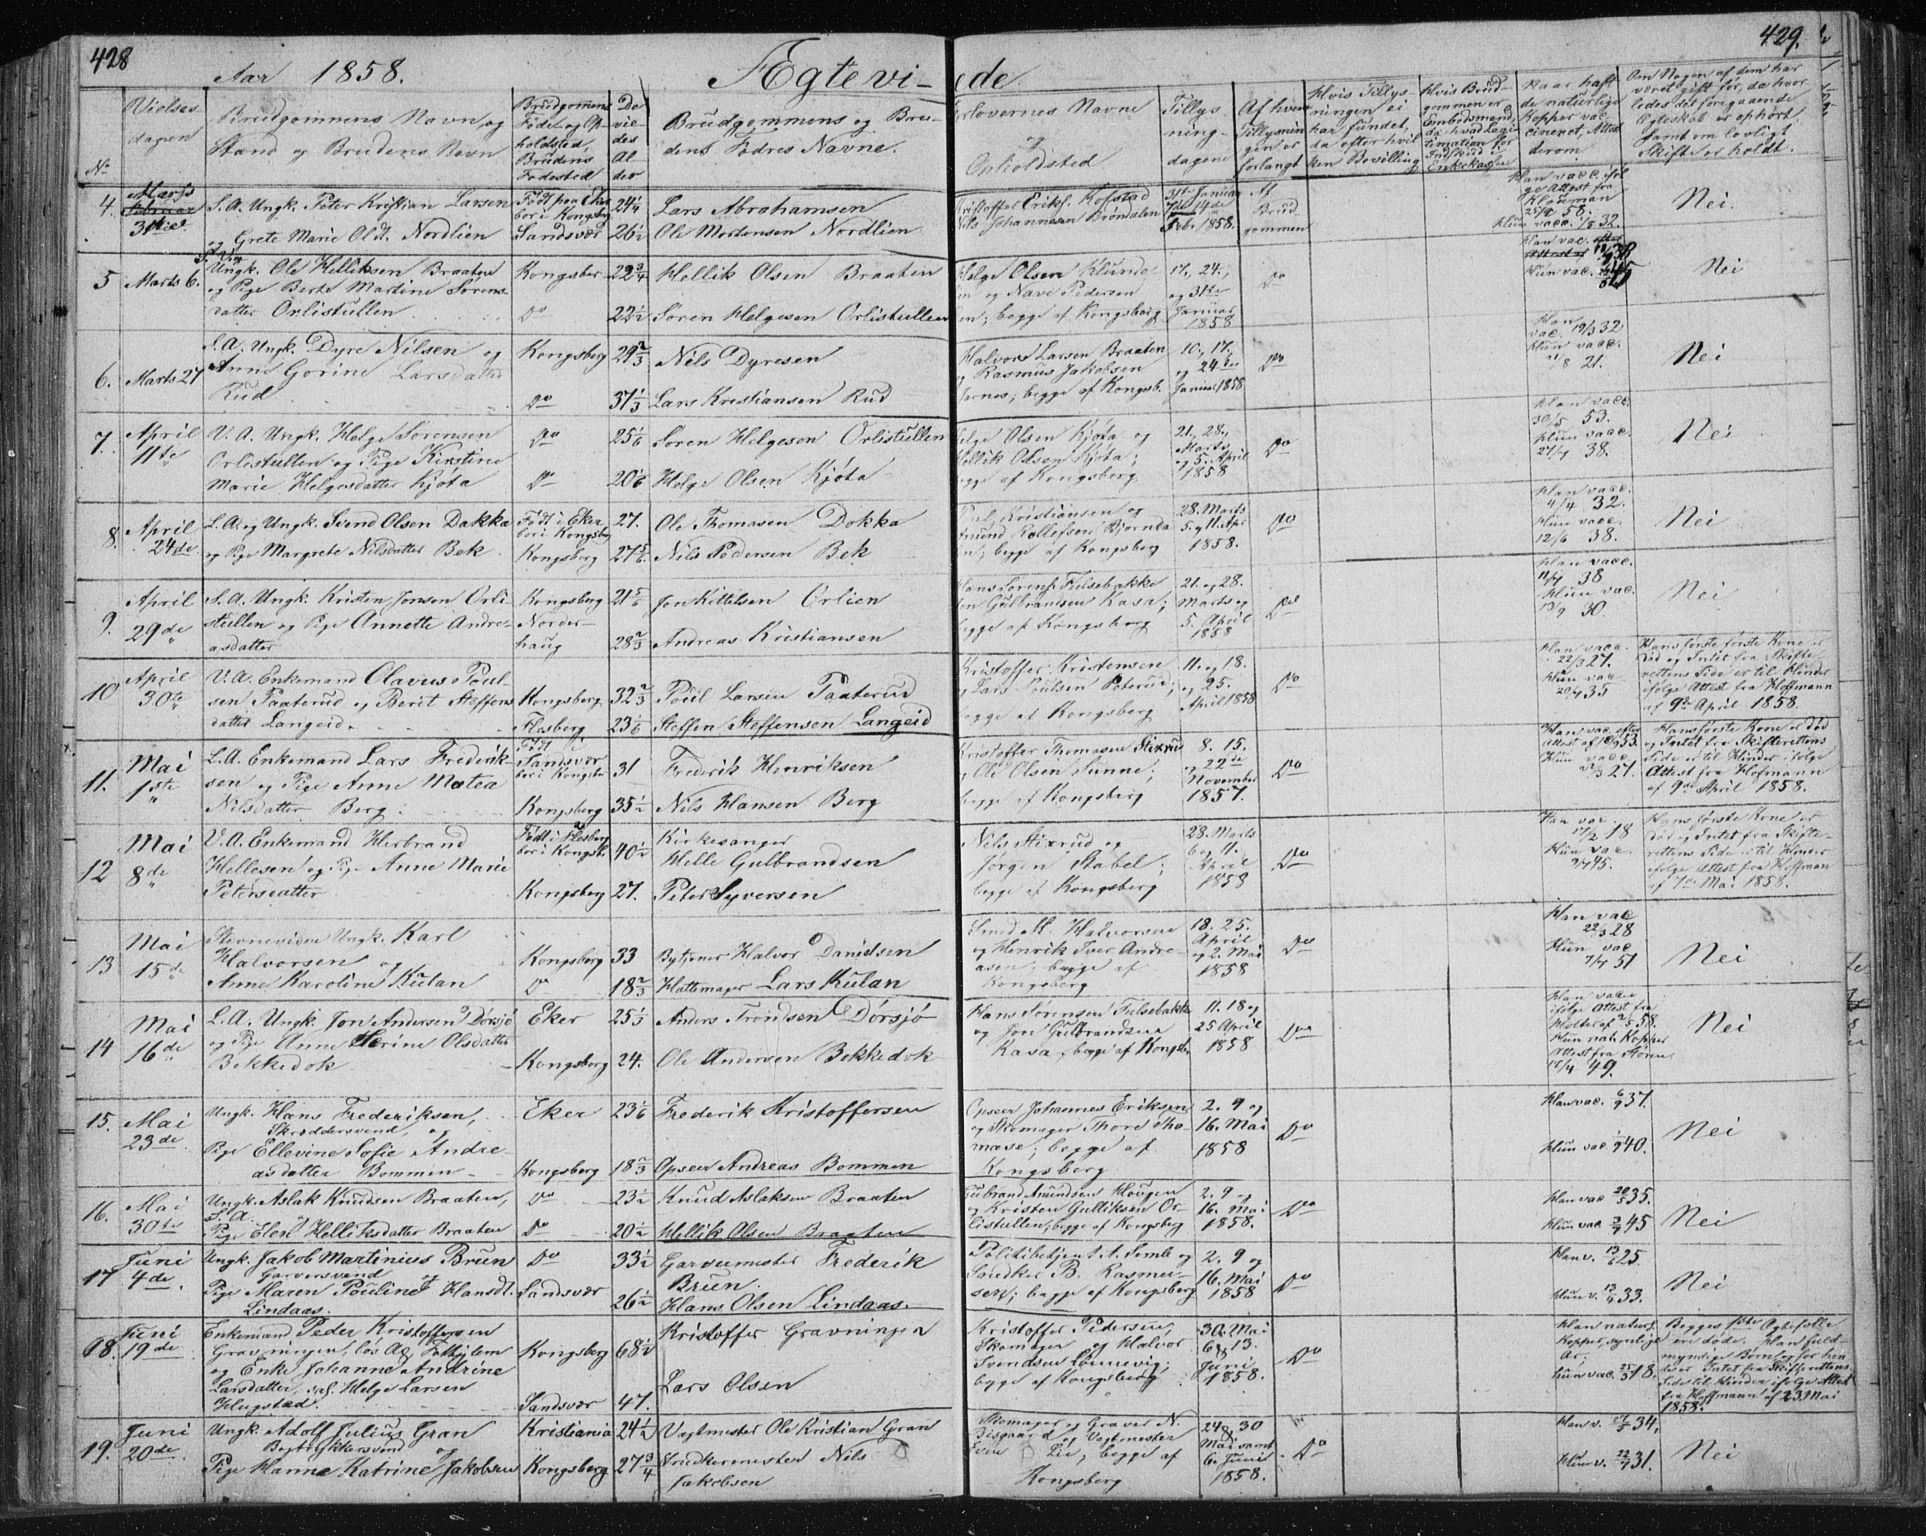 428
Aar 1858.
Ægtevi-
ede
429.
No
Vielses
dagen
Brudgommens Navn og
Stand og Brudens Navn
Brudgommens
Føde og Op-
holdsted,
Brudens
Fødested
De
vie-
des
Al
der
Brudgommens og Bru-
dens Fædres Navne.
Forlovernes Navne
og
Opholdsted
Tillys
ning-
dagene
Af hvem
Tillysnin
gen er
forlangt
Hvis Tillys-
ningen ei
har fundet,
da efter hvil
ken Bevilling
Hvis Brud-
gommen er
Embedsmand,
da hvad Legi
timation for
Indskud i
Enkekassen
Naar hafte
de naturlige
Kopper vac
cineret, Attest
derom
Om Nogen af dem har
været gift før, da hvor
ledes det foregaaende
Ægteskab er ophørt,
samt om lovligt
Skifte er holdt.
4.
Marts
Februar
31te
L.A. Ungk. Peter Kristian Larsen
og Grete Marie Olsdt. Nordlien
Født paa Eker
bor i Kongsberg
Sandsvær
24 1/4
26 1/2
Lars Abrahamsen
Ole Mortensen Nordlien
Kristoffer Eriks. Hofstad
Nils Johannesen Brøndalen
31te Januar
7de 14de
Feb. 1858.
Af
Brud
gommen
Han vacc. iføl
ge Attest fra
25/2 58.
Hun vacc. 1/8 32.
Nei.
5
Marts 6.
Ungk. Ole Helliksen Braaten
og Pige Berte Martine Sørens-
datter Orlistullen
Kongsber
Do
22 3/4
22 1/2
Hellik Olsen Braaten
Søren Helgesen Orlistullen
Helge Olsen Klunde-
og Nave Pedersen
begge af Kongsberg
17, 24,
og 31te
Januar
1858
Do
Han vac.
Hun vac.
Nei
6.
Marts 27
L.A. Ungk. Dyre Nilsen og
Anne Gorine Larsdatter
Rud
Kongsberg
Do
29 2/3
37 1/3
Nils Dyresen
Lars Kristiansen Rud
Halvor Larsen Braaten
Rasmus Jakobsen
begge af Kongsb.
10, 17,
og 24de
Januar 1858
Do
Han
vac. 19/3 32
Hun vacc.
21/8 21.
Nei
7.
April
11te
V.A. Ungk. Helge Sørensen
Orlistullen og Pige Kirstine
Marie Helgesdatter Kjøta
Do
Do
25 1/6
20 1/6
Søren Helgesen Orlistullen
Helge Olsen Kjøta
Helge Olsen Kjøta og
Hellik Olsen Kjøta;
begge af Kongsberg
21, 28,
Marts
og 5. April
1858
Do
Han vacc.
30/5 53.
Hun vacc.
27/7 38.
Nei
8.
April
24de
L.A. og Ungk. Svend Olsen Dakka
og Pige Margrete Nilsdatter Bek
Født i Eker
bor i Kongsbg
Kongsberg
27.
27 5/6
Ole Thomasen Dokka
Nils Pedersen Bek
Kristiansen og
Kollefsen Bjørnda
begge af Kongsberg
28. Marts
5. og 11. Apr
1858.
Do
Han vacc.
4/4 32.
Hun vacc.
12/6 38.
Nei
9.
April
29de
S.A. Ungk. Kristen Jonsen Orli-
stullen og Pige Annette Andre-
asdatter
Kongsberg
Norder-
haug
21 5/6
28 2/3
Jon Kittelsen Orlien
Andreas Kristiansen
Hans Sørens. Felsebakke
Jon Gulbrandsen Kasa;
begge af Kongsberg
21. og 28.
Marts og
5. April
1858
Do
Han vacc.
11/7 38
Hun vac.
13/9 30.
Nei
10
April
30te
V.A. Enkemand Olavus Poul-
sen Paaterud og Berit Steffens
datter Langeid
Kongsberg
Flesberg
32 2/3
23 1/6
Poul Larsen Paaterud
Steffen Steffensen Langeid
Kristoffer Kristensen
Lars Poulsen Poterud;
begge af Kongsberg
11. og 18.
og 25.
April 1858
Do
Han vacc.
22/3 27.
Hun vac.
20/7 35
Hans første første Kone er
død og Intet fra Skifte
rettens Side er til Hinder
ifølge Attest fra Hoffmann
af 9de April 1858.
11.
Mai
1ste
L.A. Enkemand Lars Frederik-
sen og Pige Anne Matea
Nilsdatter Berg
Født i
Sandsvær
bor i Kongsbr
Kongsberg
31
35 1/2
Frederik Henriksen
Nils Hansen Berg
Kristoffer Thomasen Stixrud
Ole Olsen Sunne;
begge af Kongsberg
8. 15.
og 22de
November
1857.
Do
Han vacc. efter
Hun vacc.
27.
Hans første Kone er død
og Intet fra Skifterettens
Side er til Hinder ifølge
Attest fra Hofmann
af 9de April 1858.
12
Mai
8de
V.A. Enkemand Herbrand
Hellesen og Pige Anne Marie
Petersdatter
Født i Flesberg
bor i Kongsb.
Kongsberg
40 1/2
27.
Kirkesanger
Helle Gulbrandsen
Peter Syversen
Nils Stixrud og
Jørgen Stabel;
begge af Kongsberg
28. Marts
6 og 11.
April
1858
Do
Han vac.
17/2 18
Hun vac.
9/7 45.
Hans første Kone er
død og Intet fra Skifte-
rettens Side er til Hinder
ifølge Attest fra Hoffman
af 7de Mai 1858.
13
Mai
15de
Stevnevidne Ungk. Karl
Halvorsen og
Anne Karoline Kulan
Kongsberg
Do
33
18 2/3
Bytjener Halvor Danielsen
Hattemager Lars Kulan
Smed M. Halvorsen
og Henrik Iver Andre-
asen; begge af
Kongsberg
18. 25.
April
og 2. Mai
1858
Do
Han vac
22/3 28
Hun vac
7/7 51
Nei
14
Mai
16de
L.A. Ungk. Jon Andersen Dørsjø
og Pige Anne Serine Olsdatter
Bekkedok
Eker
Kongsberg
25 1/3
24.
Anders Trondsen Dørsjø
Ole Andersen Bekkedok
Hans Sørensen Felsebakke
og Jon Gulbrandsen
Kasa, begge af Kongsb
11. 18 og
25 April
1858
Do
Han vacc
ifølge Attest fra
Holter af 2/5 58.
Hun nat. Kopper
Attest fra Støren
18/4 49.
Nei
15.
Mai
23de
Ungk. Hans Frederiksen,
Skræddersvend, og
Pige Ellevine Sofie Andre-
asdatter Bommen
Eker
Kongsberg
23 1/6
18 2/3
Frederik Kristoffersen
Opseer Andreas Bommen
Opseer Johannes Eriksen
og Skomager Thore Tho
mase; begge af
Kongsberg
2. 9 og
16. Mai
1858
Do
Han vac. 6/9 37.
Hun vac. 40.
Nei
16.
Mai
30te
Ungk. Aslak Knudsen Braaten,
S.A.
Pige Elen Helliksdatter Braaten
Do
Do
23 1/2
20 1/2
Knud Aslaksen Braaten
Hellik Olsen Braaten
Gulbrand Amundsen Haugen
og Kristen Gulliksen Or-
listullen, begge af Kongsberg
2. 9 og
16. Mai
1858.
Do
Han vac. 20/5 35.
Hun vac. 2/7 45
Nei
17
Juni
4de
Ungk. Jakob Martinius Brun
Garversvend og
Pige Maren Pouline Hansdt.
Lindaas.
Do
Sandsvær
33 1/2
26 1/2
Garvermester Frederik
Brun.
Hans Olsen Lindaas.
Politibetjent A. Semb og
Snedker B. Rasmus-
sen; begge af Kongsberg
2. 9 og
16. Mai
1858
Do
Han v. 13/6 25.
Hun v. 13/9 33.
Nei
18.
Juni
19de
Enkemand Peder Kristoffersen
Gravningen, løs Ar. Fattiglem
og Enke Johanne Andrine
Larsdatter, sal. Helge Larsen
Klugstad.
Kongsberg
Sandsvær
68 1/2
47.
Kristoffer Gravningen
Lars Olsen
Kristoffer Pedersen,
Skomager og Halvor
Svendsen Lunnevig;
begge af Kongsberg
30. Mai
6 & 13.
Juni
1858.
Do
Han naturl.
Kopper, synlige
Ar;
Hun vac. 25/5 18.
Begges første Ægtefolle
ere døde. Han fuld
myndige Børn og for hen
des er Intet fra Skifterettens
Side til Hinder ifølge Attest
fra Hoffmann af 23. Mai
1858.
19.
Juni
20de
Ungk. Adolf Julius Gran
Bogtrykkersvend og
Pige Hanna Katrine Jakobsen
Kristiania
Kongsberg
24 1/2
27 3/4
Vagtmester Ole Kristian Gran
Snedkermester Nils
Jakobsen
Skomager og Graver N.
Bisgaard og Vagtmester
Even Lie; begge af
Kongsberg
24 & 30
Mai samt
6. Juni
1858.
Do
Han v. 34,
Hun v. 22/7 31.
Nei